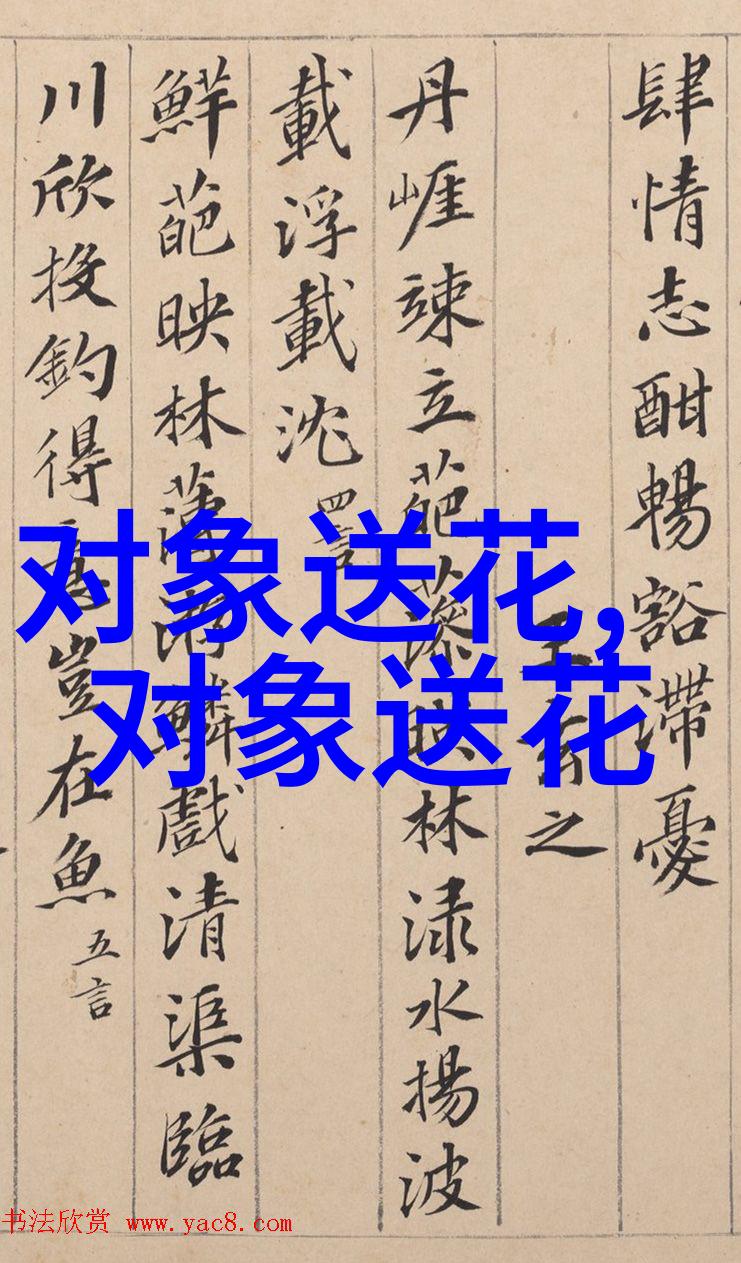 肆情志酣暢豁滯憂
王玄之
丹崕竦立葩藻映林渌水揚波
載浮載沈 四言
鮮葩映林薄游鱗戲清渠臨
川欣投釣得意豈在魚 五言
对象送花,
对象送花
书法欣赏 www.yac8.com